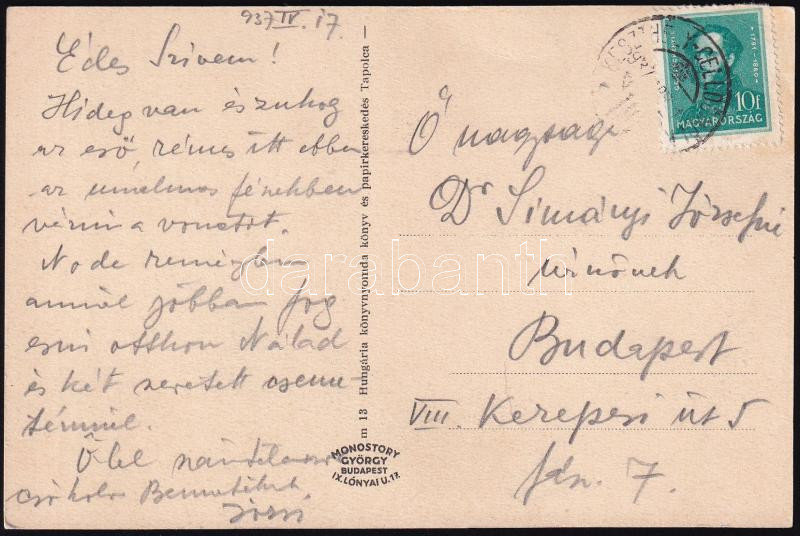 937 IV. 17.
Édes Szivem!
Hideg van és zuhog
az eső, rémes itt ebben
az unalmas fészekben
várni a vonatot.
No de remélem
annál jobban fog
esni otthon Nálad
és két szeretett cseme-
témnél.
Ölel
csókolva Bennetek
Józsi
m 13 Hungária könyvnyomda könyv és papirkereskedés Tapolca —
MONOSTORY
GYÖRGY
BUDAPEST
IX. LÓNYAI U. 17.
KESZTHELY-CELLD
1781-1840
10f
MAGYARORSZÁG
Ő nagysága
Dr Simányi Józsefné
urnőnek
Budapest
VIII. Kerepesi út 5
fdsz. 7.
darabanth